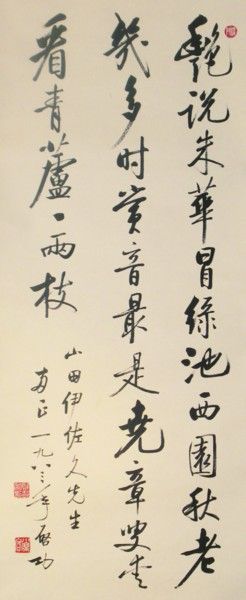 艷说朱華冒綠池西園秋老
幾多时賞音最是堯章叟爱
看青蘆一兩枝
山田伊佐久先生
教正一九八三年啟功